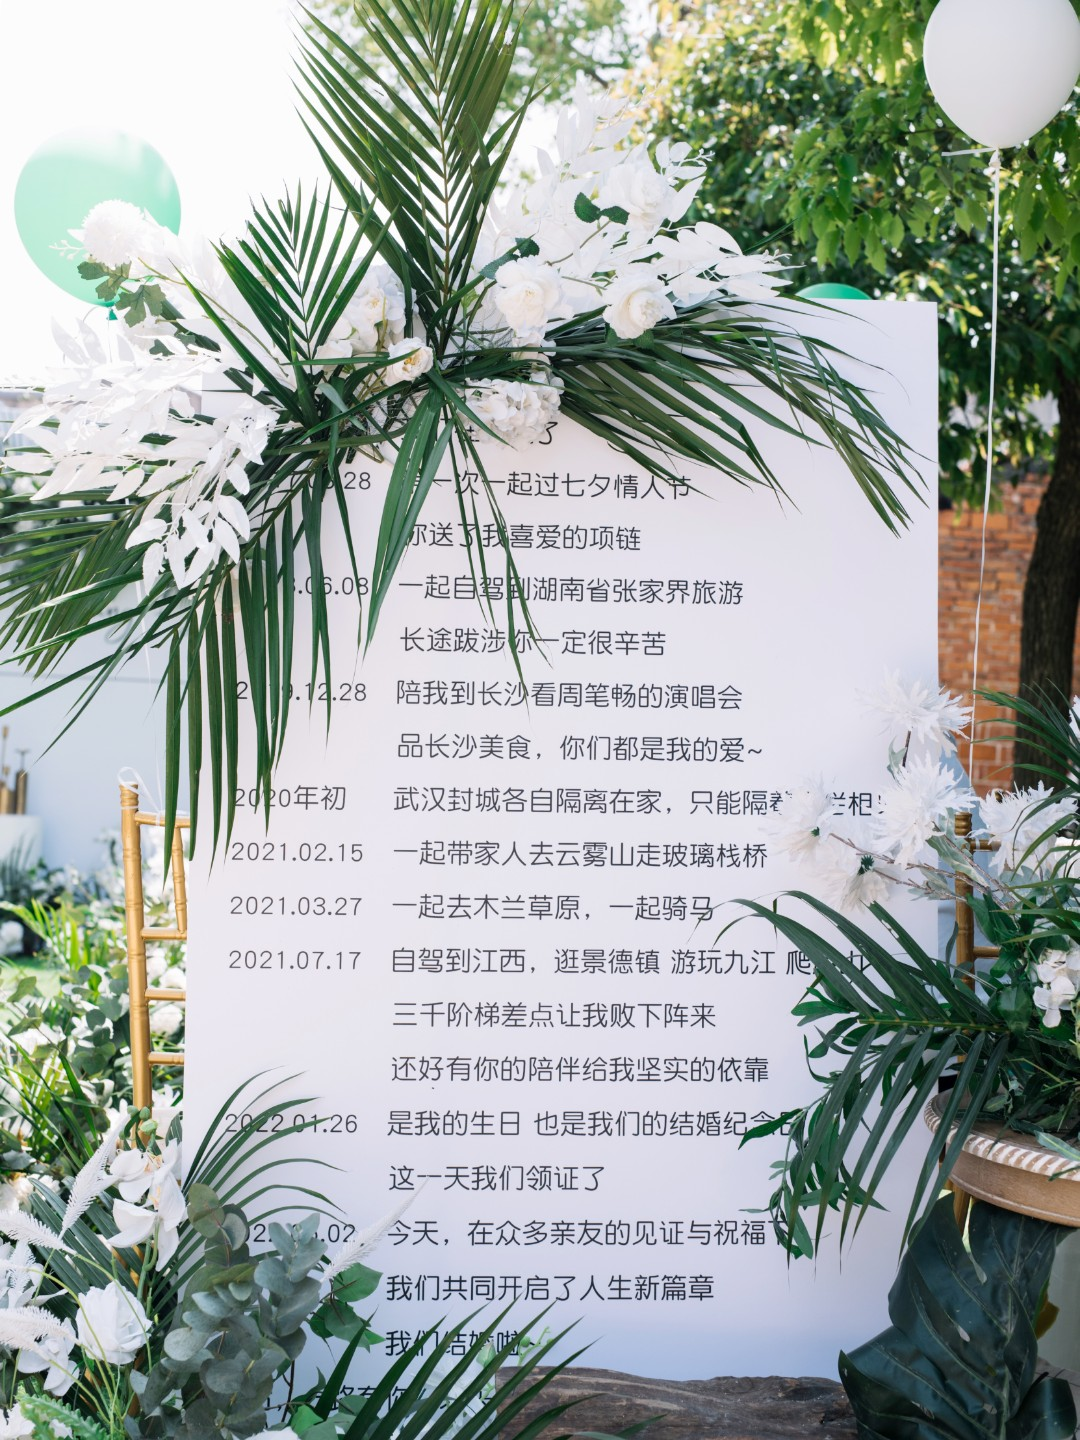 了
28 一次一起过七夕情人节
你送了我喜爱的项链
8.06.08 一起自驾到湖南省张家界旅游
长途跋涉你一定很辛苦
2019.12.28 陪我到长沙看周笔畅的演唱会
品长沙美食，你们都是我的爱~
2020年初 武汉封城各自隔离在家，只能隔着
2021.02.15 一起带家人去云雾山走玻璃栈桥
2021.03.27 一起去木兰草原，一起骑马
2021.07.17 自驾到江西，逛景德镇 游玩九江 爬
三千阶梯差点让我败下阵来
还好有你的陪伴给我坚实的依靠
2022.01.26 是我的生日 也是我们的结婚纪念日
这一天我们领证了
02 今天，在众多亲友的见证与祝福下
我们共同开启了人生新篇章
我们结婚啦~
有你